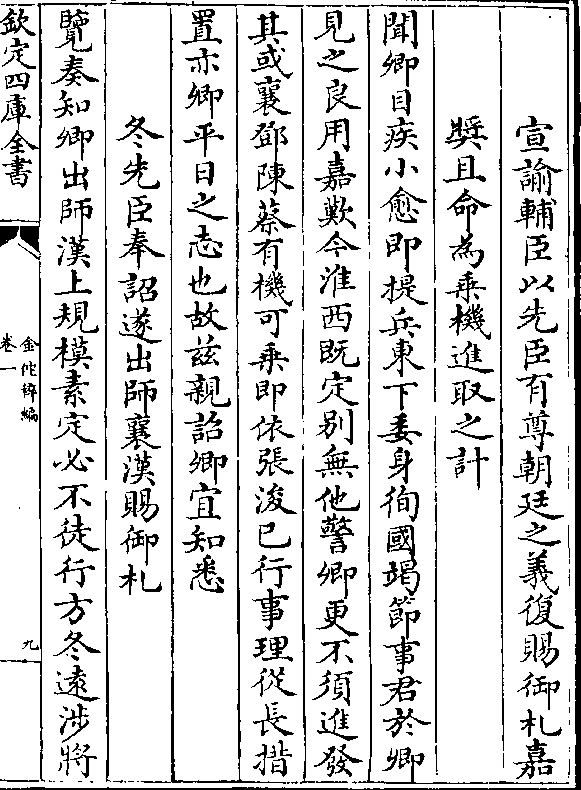 宣諭輔臣以先臣有尊朝廷之義復賜御札嘉
奬且命為乗機進取之計
聞卿目疾小愈即提兵東下委身徇國竭節事君於卿
見之良用嘉歎今淮西既定别無他警卿更不須進發
其或襄鄧陳蔡有機可乗即依張浚已行事理從長措
置亦卿平日之志也故兹親詔卿宜知悉
冬先臣奉詔遂出師襄漢賜御札
覽奏知卿出師漢上規模素定必不徒行方冬遠涉將
欽定四庫全書
金佗稡編
卷一
九